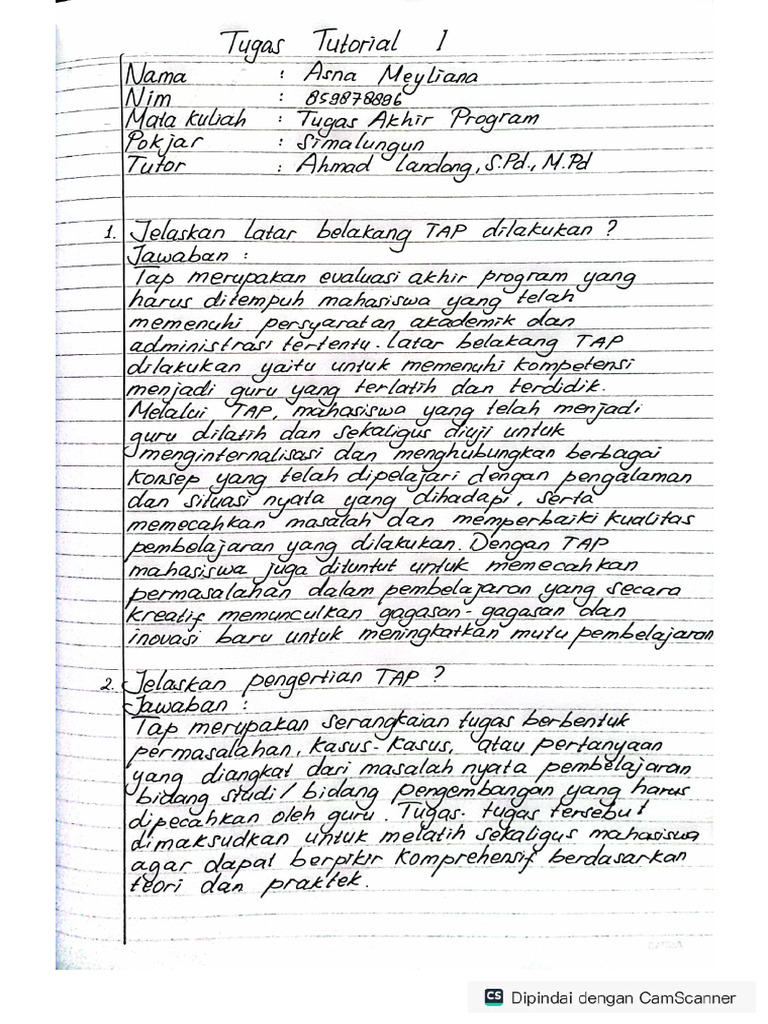 Tugas Tutorial 1
Nama : Asna Meyliana
Nim : 859878896
Mata Kuliah : Tugas Akhir Program
Pokjar : Simalungun
Tutor : Ahmad Landong, S.Pd., M.Pd
1. Jelaskan latar belakang TAP dilakukan ?
Jawaban :
Tap merupakan evaluasi akhir program yang
harus ditempuh mahasiswa yang telah
memenuhi persyaratan akademik dan
administrasi tertentu. latar belakang TAP
dilakukan yaitu untuk memenuhi kompetensi
menjadi guru yang terlatih dan terdidik.
Melalui TAP, mahasiswa yang telah menjadi
guru dilatih dan sekaligus diuji untuk
menginternalisasi dan menghubungkan berbagai
konsep yang telah dipelajari dengan pengalaman
dan situasi nyata yang dihadapi, serta
memecahkan masalah dan memperbaiki kualitas
pembelajaran yang dilakukan. Dengan TAP
mahasiswa juga dituntut untuk memecahkan
permasalahan dalam pembelajaran yang secara
kreatif memunculkan gagasan-gagasan dan
inovasi baru untuk meningkatkan mutu pembelajaran
2. Jelaskan pengertian TAP ?
Jawaban :
Tap merupakan serangkaian tugas berbentuk
permasalahan, kasus-kasus, atau pertanyaan
yang diangkat dari masalah nyata pembelajaran
bidang studi/ bidang pengembangan yang harus
dipecahkan oleh guru. Tugas-tugas tersebut
dimaksudkan untuk melatih sekaligus mahasiswa
agar dapat berpikir komprehensif berdasarkan
teori dan praktek.
CS Dipindai dengan CamScanner